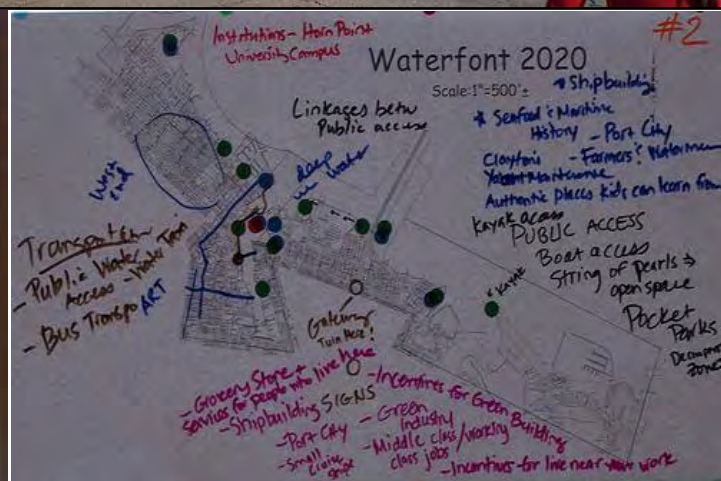 #2
Institutions - Horn Point
University Campus
Waterfont 2020
Scale:1"=500'±
Shipbuilding
* Seafood & Maritime
History - Port City
Claytons - Farmers & Watermen
Maintenance
Authentic places kids can learn from
Linkages betw
Public access
Keep
in water
West
end
Kayak access
PUBLIC ACCESS
Boat access
String of Pearls →
open space
Pocket
Parks
Decompress
Zone
Kayak
- Public Water
Access - Water Taxi
- Bus Transpo
ART
Gateway
Turn Here!
- Grocery Store +
services for people who live here
- Shipbuilding SIGNS
- Port City
- Small
cruise
ships
- Incentives for Green Building
- Green
Industry
- Middle class/working
class jobs
- Incentives for live near work